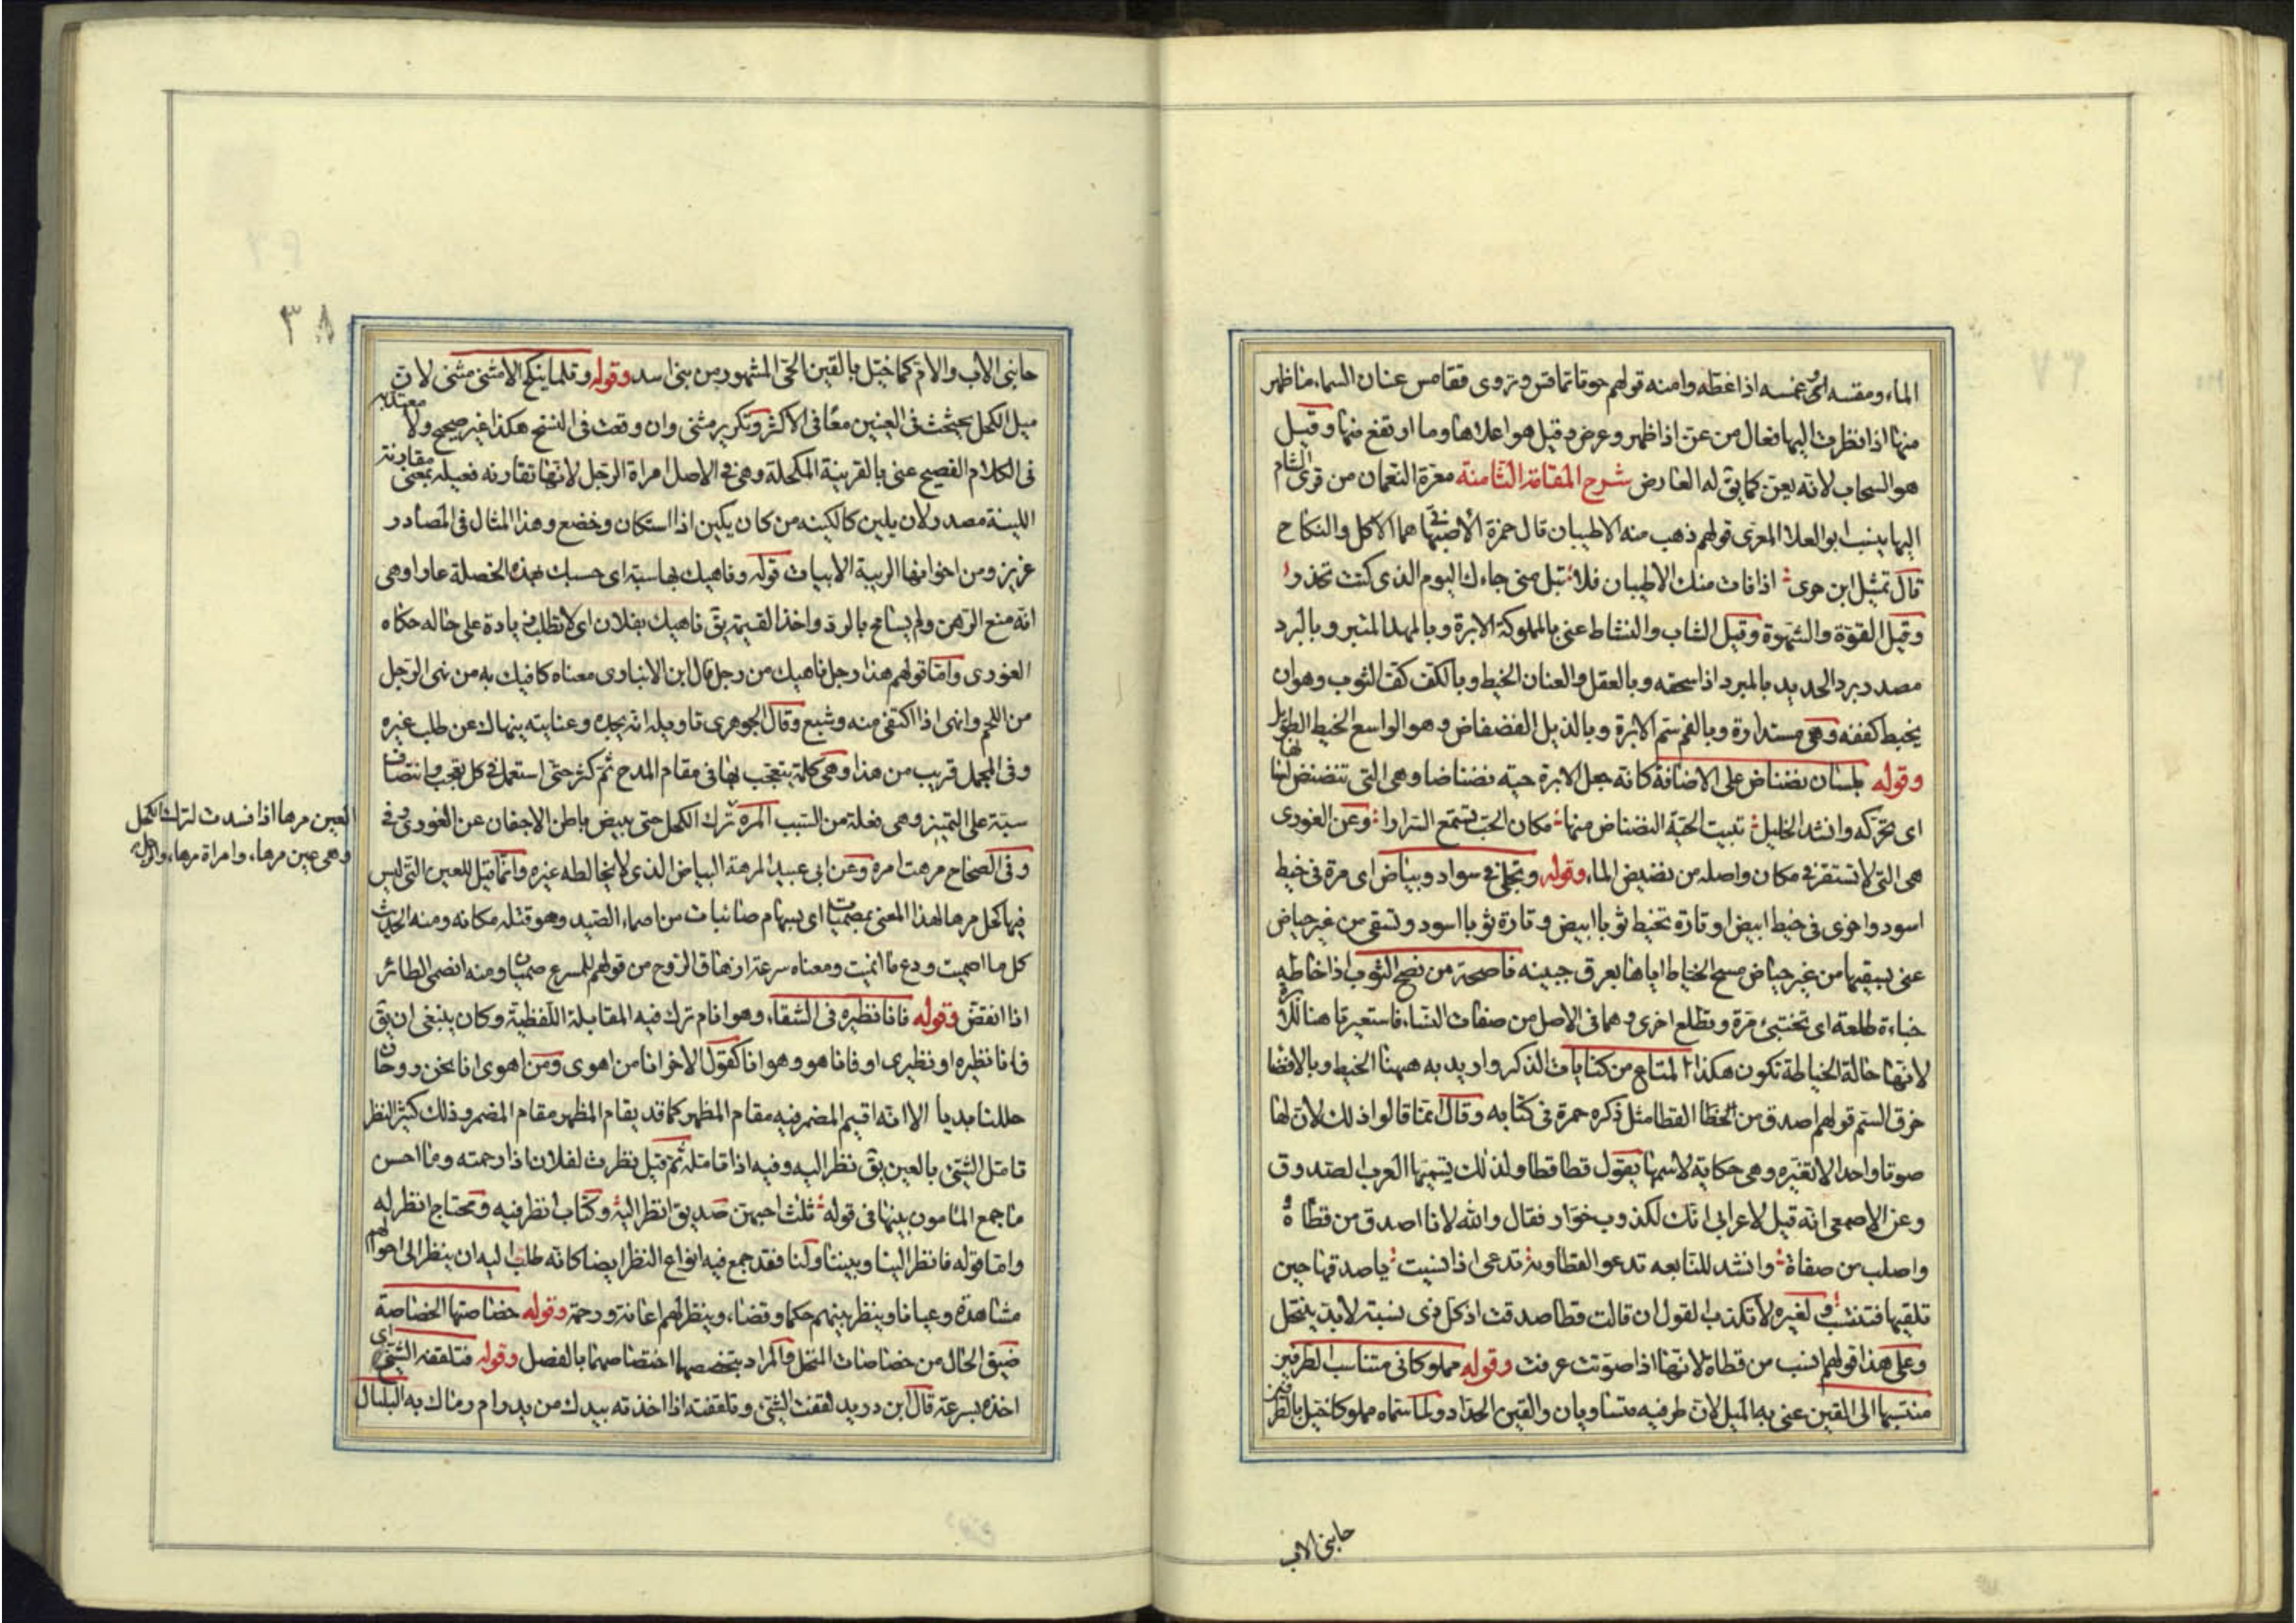 الماء ومقسه اى غمسه اذا غطه وامنه قولهم حوتا تماقس وتروى فقامس عنان السماء ما ظهر
منها اذا نظرت اليها فعال من عنّ اذا ظهر وعرض وقيل هو اعلاها وما ارتفع منها وقيل
هو السحاب لانه يعن كما يق له العارض شرح المقامة الثامنة معرة النعمان من قرى الشام
اليها ينسب ابو العلا المعرى قولهم ذهب منه الاطيبان قال حمزة الاصبهانى هما الاكل والنكاح
قال تمثيل ابن حوى اذا فات منك الاطيبان فلا تبل متى جاءك اليوم الذى كنت تحذر
وقيل القوة والشهوة وقيل الشاب والنشاط عنى بالمملوكة الابرة وبالمهد المتبر وبالبرد
مصدر برد الحديد بالمبرد اذا سحقه وبالعقل والعنان الخيط وبالكف كف الثوب وهو ان
يخيط كففه وهى مستدارة وبالفم ستم الابرة وبالذيل الفضفاض وهو الواسع الخيط الطويل
وقوله بلسان نضناض على الاضافة كانه جعل الابرة حية نضناضا وهى التى تنضنض لسانها
اى تحركه وانشد الخليل تبيت الحية النضناض منها مكان الحب تستمع السرارا وعن الغورى
هى التى لا تستقر فى مكان واصله من نضيض الماء وقوله وتجلى فى سواد وبياض اى مرة فى خيط
اسود واخرى فى خيط ابيض او تارة تخيط ثوبا ابيض وتارة ثوبا اسود وتسقى من غير حياض
عنى بسقيها من غير حياض مسح الخياط اياها بعرق جبينه ناصحة من نصح الثوب اذا خاطه
خباءة طلعة اى تختبئ مرة وتطلع اخرى وهما فى الاصل من صفات النساء فاستعيرتا هنا للابرة
لانها حالة الخياطة تكون هكذا المتاع من كنايات الذكر واريد به ههنا الخيط وبالافضا
خرق السم قولهم اصدق من القطا مثل ذكره حمزة فى كتابه وقال انما قالوا ذلك لان لها
صوتا واحدا لا تغيره وهى حكاية لاسمها يقول قطا قطا ولذلك يسميها العرب الصدوق
وعن الاصمعى انه قيل لاعرابى انك لكذوب خوار فقال والله لانا اصدق من قطاة
واصلب من صفاة وانشد للنابغه تدعو القطا وبه تدعى اذا نسبت يا صدقها حين
تلقيها فتنتسب ولغيره لا تكذب القول ان قالت قطا صدقت اذ كل ذى نسبة لا بد ينتحل
وعلى هذا قولهم انسب من قطاة لانها اذا صوتت عرفت وقوله مملوكا فى متناسب الطرفين
منتسبها الى القين عنى به الميل لان طرفيه متساويان والقين الحداد ولما سماه مملوكا خيل بالطرفين
حابنى الاب
٣٨
حابنى الاب والام كما خيل بالقين الحى المشهور من بنى اسد وقوله وقلما ينكح الا مثنى مثنى لان
ميل الكحل يحثحث فى العينين معا فى الاكثر وتكرير مثنى وان وقعت فى النسخ هكذا غير صحيح ولا معتد به
فى الكلام الفصيح عنى بالقرينة المكحلة وهى فى الاصل امراة الرجل لانها تقارنه فعيله بمعنى مقارنة
اللينة مصدر لان يلين كالكينه من كان يكين اذا استكان وخضع وهذا المثال فى المصادر
عزيز ومن اخواتها الريبة الابيات قوله وناهيك بها سبة اى حسبك بهذه الخصلة عارا وهى
انه منع الرهن ولم يسامح بالرد واخذ القيمة يق ناهيك بفلان اى لا تطلب زيادة على حاله حكاه
الغورى واما قولهم هذا رجل ناهيك من رجل قال ابن الانبارى معناه كافيك به من نهى الرجل
من اللحم وانهى اذا اكتفى منه وشبع وقال الجوهرى تاويله انه بجده وعنايته ينهاك عن طلب غيره
وفى المجمل قريب من هذا وهى كلمة يتعجب بها فى مقام المدح ثم كثر حتى استعمل فى كل تعجب وانتصاب
سبة على التمييز وهى فعلة من السبب المره ترك الكحل حتى يبيض باطن الاجفان عن الغورى وفى
وفى الصحاح مرهت امره وعن ابى عبيد المرهة البياض الذى لا يخالطه غيره وانما قيل للعين التى ليس
فيها كحل مرها لهذا المعنى بمصميات اى بسهام صائبات من اصماء الصيد وهو قتله مكانه ومنه الحديث
كل ما اصميت ودع ما انميت ومعناه سرعة ازهاق الروح من قولهم للمسرع صميان ومنه انصمى الطائر
اذا انقض وقوله فانا نظيره فى الشقاء وهو انا م ترك فيه المقابلة اللفظية وكان ينبغى ان يق
فانا نظيره او نظيرى او فانا هو وهو انا كقول الاخر انا من اهوى ومن اهوى انا نحن روحان
حللنا بديا الا انه اقيم المضمر فيه مقام المظهر كما قد يقام المظهر مقام المضمر وذلك كثير النظر
تامل الشئ بالعين يق نظر اليه وفيه اذا تامله ثم قيل نظرت لفلان اذا رحمته وما احسن
ما جمع المامون بينها فى قوله ثلث احبهن صديق انظر اليه وكتاب انظر فيه ومحتاج انظر له
واما قوله فانظر الينا وبيننا ولنا فقد جمع فيه انواع النظر ايضا كانه طلب اليه ان ينظر الى احوالهم
مشاهدة وعيانا وينظر بينهم حكما وقضاء وينظر لهم اعانة ورحمة وقوله خصاصتها الخصاصة
ضيق الحال من خصاصات المنخل والمراد بتخصصها اختصاصهما بالفضل وقوله فتلقفه الشئ اى
اخذه بسرعة قال ابن دريد لقفت الشئ وتلقفته اذا اخذته بيدك من يد رام رماك به البلبال
العين مرها اذا فسدت لترك الكحل
وهى عين مرهاء وامراة مرهاء والرجل